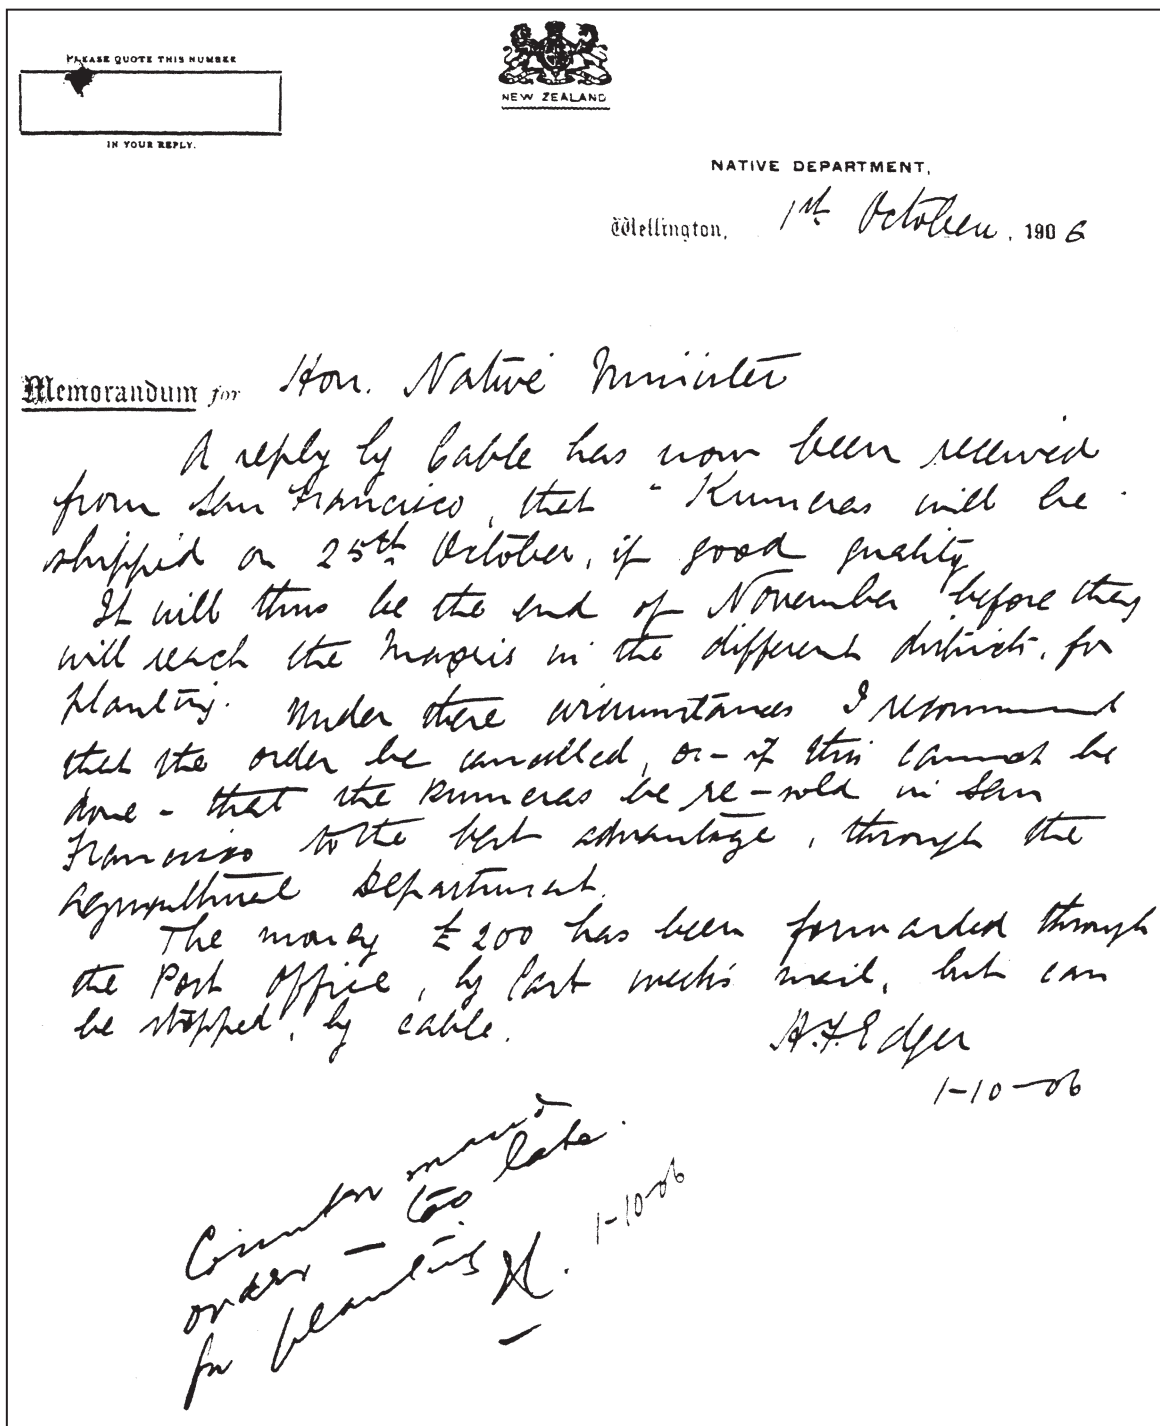 PLEASE QUOTE THIS NUMBER
IN YOUR REPLY.
NEW ZEALAND
NATIVE DEPARTMENT,
Wellington, 1st October, 1906
Memorandum for Hon. Native Minister
A reply by Cable has now been received
from San Francisco, that "Kumeras will be
shipped on 25th October, if good quality
It will thus be the end of November before they
will reach the Maoris in the different districts, for
planting. Under these circumstances I recommend
that the order be cancelled, or – if this cannot be
done – that the Kumeras be re-sold in San
Francisco to the best advantage, through the
Agricultural Department.
The money £200 has been forwarded through
the Post Office, by last week's mail, but can
be stopped, by cable.
H.F. Edger
1-10-06
Countermand
order – too late
for planting
1-10-06